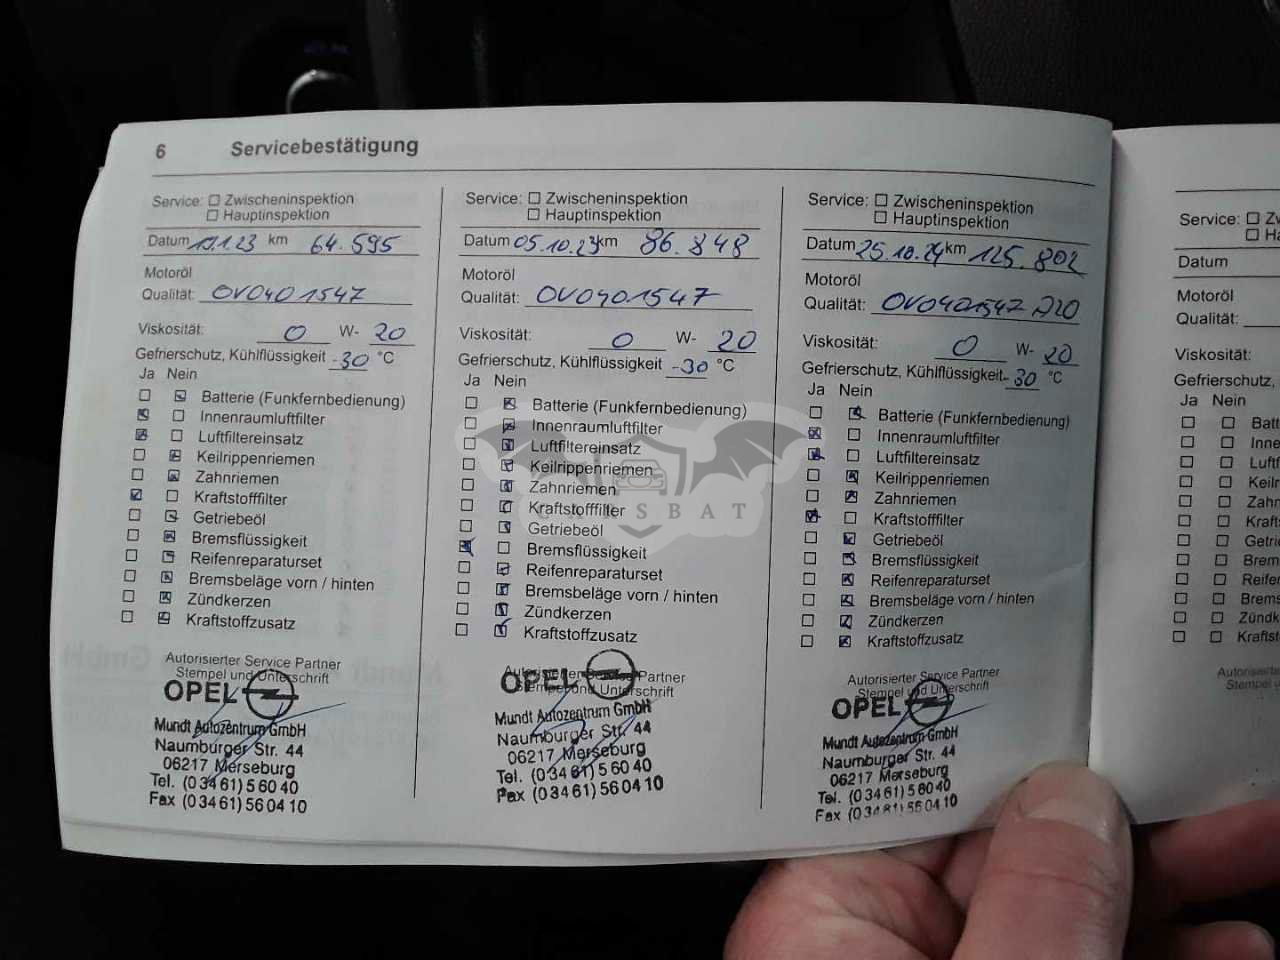 6 Servicebestätigung
Service: Zwischeninspektion
Hauptinspektion
Datum 19.1.23 km 64.595
Motoröl
Qualität: OV0401547
Viskosität: 0 W- 20
Gefrierschutz, Kühlflüssigkeit -30 °C
Ja Nein
Batterie (Funkfernbedienung)
Innenraumluftfilter
Luftfiltereinsatz
Keilrippenriemen
Zahnriemen
Kraftstofffilter
Getriebeöl
Bremsflüssigkeit
Reifenreparaturset
Bremsbeläge vorn / hinten
Zündkerzen
Kraftstoffzusatz
Autorisierter Service Partner
Stempel und Unterschrift
OPEL
Mundt Autozentrum GmbH
Naumburger Str. 44
06217 Merseburg
Tel. (03461) 5 60 40
Fax (03461) 56 04 10
Service: Zwischeninspektion
Hauptinspektion
Datum 05.10.23 km 86.848
Motoröl
Qualität: OV0401547
Viskosität: 0 W- 20
Gefrierschutz, Kühlflüssigkeit -30 °C
Ja Nein
Batterie (Funkfernbedienung)
Innenraumluftfilter
Luftfiltereinsatz
Keilrippenriemen
Zahnriemen
Kraftstofffilter
Getriebeöl
Bremsflüssigkeit
Reifenreparaturset
Bremsbeläge vorn / hinten
Zündkerzen
Kraftstoffzusatz
Autorisierter Service Partner
Stempel und Unterschrift
OPEL
Mundt Autozentrum GmbH
Naumburger Str. 44
06217 Merseburg
Tel. (03461) 5 60 40
Fax (03461) 56 04 10
Service: Zwischeninspektion
Hauptinspektion
Datum 25.10.24 km 125.802
Motoröl
Qualität: OV0401547 A20
Viskosität: 0 W- 20
Gefrierschutz, Kühlflüssigkeit -30 °C
Ja Nein
Batterie (Funkfernbedienung)
Innenraumluftfilter
Luftfiltereinsatz
Keilrippenriemen
Zahnriemen
Kraftstofffilter
Getriebeöl
Bremsflüssigkeit
Reifenreparaturset
Bremsbeläge vorn / hinten
Zündkerzen
Kraftstoffzusatz
Autorisierter Service Partner
Stempel und Unterschrift
OPEL
Mundt Autozentrum GmbH
Naumburger Str. 44
06217 Merseburg
Tel. (03461) 5 60 40
Fax (03461) 56 04 10
Service: Zw
Ha
Datum
Motoröl
Qualität:
Viskosität:
Gefrierschutz,
Ja Nein
Batt
Inne
Luftf
Keilr
Zahn
Kraft
Getri
Brem
Reife
Brems
Zündk
Kraftst
Autorisier
Stempel u
CARSBAT